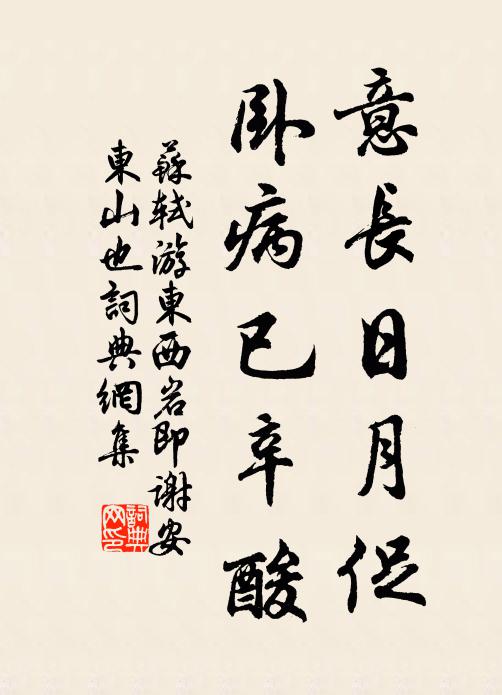 意長日月促
臥病已辛酸
蘇軾游東西岩即謝安
東山也詞典網集
詞典
网印